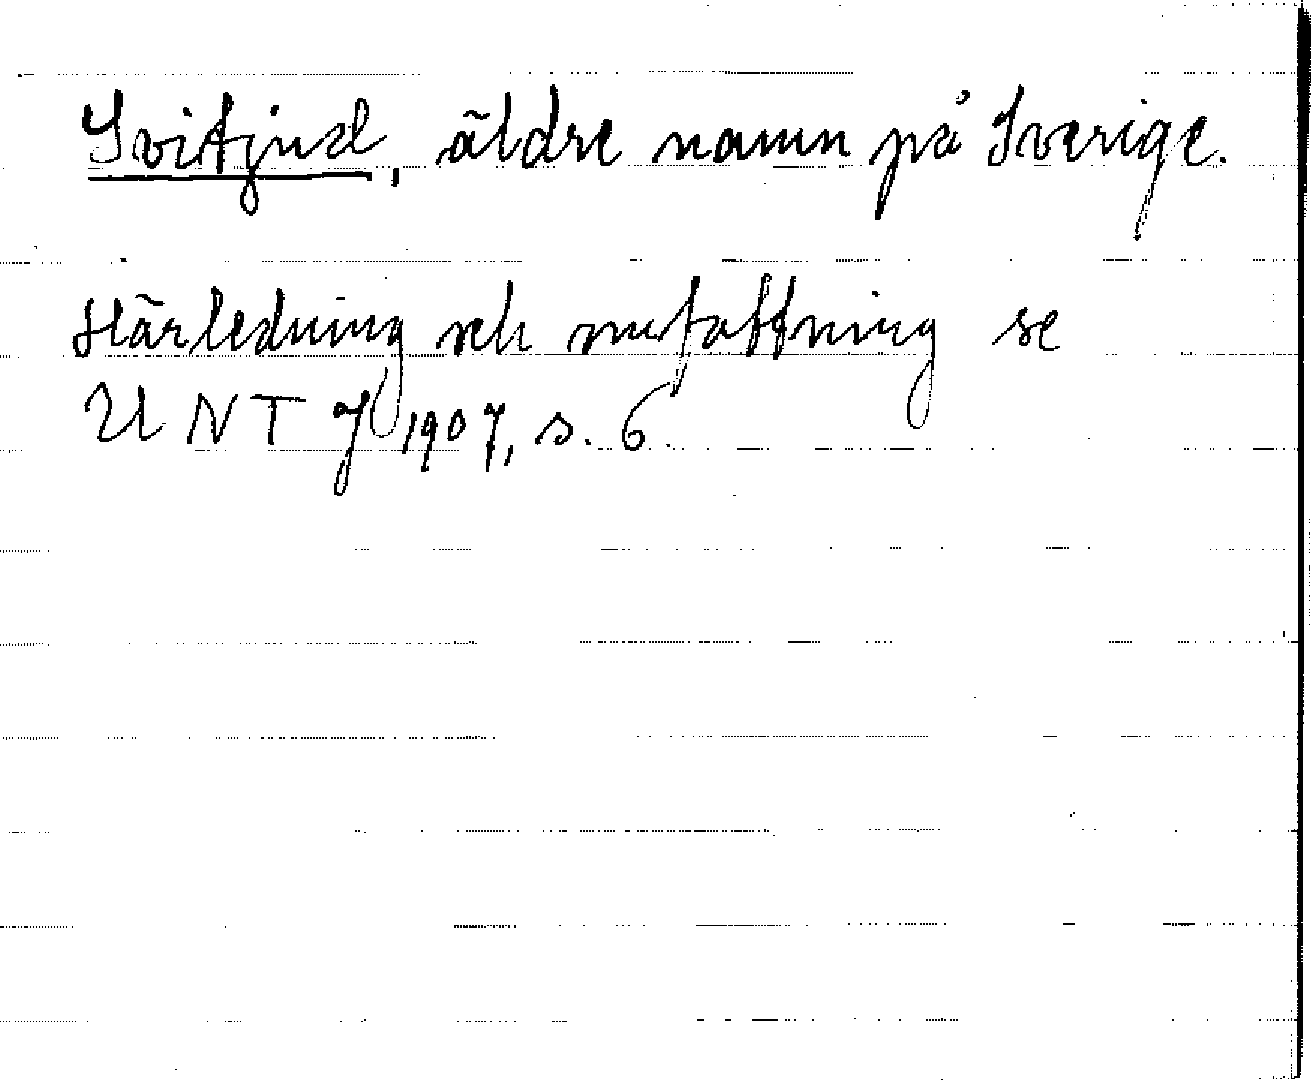 Svitjud, äldre namn på Sverige.
Härledning och omfattning se
UNT J 1907, s. 6.